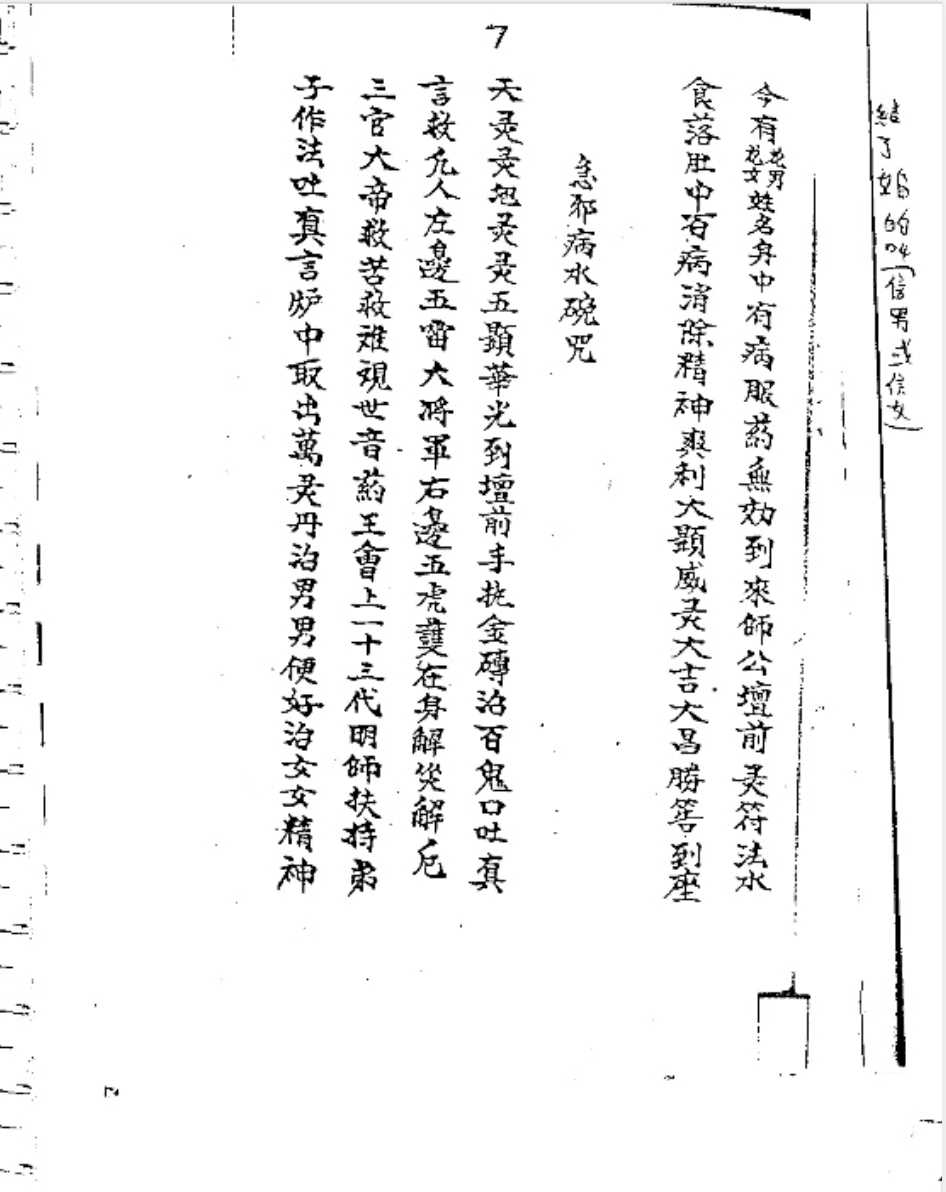 結了婚的叫(信男或信女)
7
今有花男花女姓名身中有病服葯無効到來師公壇前灵符法水
食落肚中百病消除精神爽利大顕威灵大吉大昌勝筶到座
急邪病水碗咒
天灵灵地灵灵五顕華光到壇前手执金磚治百鬼口吐真
言救凢人左邊五雷大將軍右邊五虎護在身解災解厄
三官大帝救苦救难覌世音葯王會上一十三代明師扶持弟
子作法吐真言炉中取出萬灵丹治男男便好治女女精神